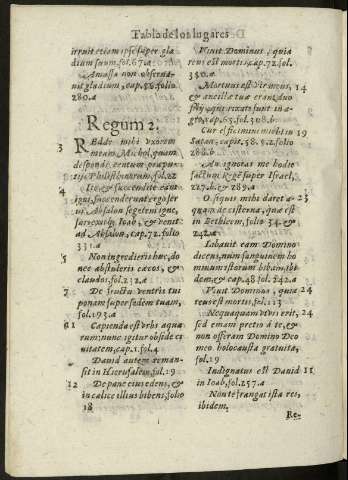 Tabla de los lugares
irruit etiam ipse super gla
dium suum, fol. 67. a
Amassa non observa-
vit gladium, cap. 56. folio
280. a
Regum 2.
3 REdde mihi uxorem
meam Michol, quam
despondi centum præpu-
tijs Philisthinorum, fol. 22
4 Ite, & succendite eam
igni, succenderunt ergo ser
vi Absalon segetem igne,
surrexitq; Ioab, & venit
ad Absalon, cap. 72. folio
331. a
5 Non ingredieris huc, do-
nec abstuleris cæcos, &
claudos, fol. 232. a
7 De fructu ventris tui
ponam super sedem tuam,
fol. 193. a
11 Capienda est urbs aqua
rum; nunc igitur obside ci
vitatem, cap. 1. fol. 4
David autem reman-
sit in Hierusalem, fol. 19
12 De pane eius edens, &
in calice illius bibens, folio
18
Vivit Dominus, quia
reus est mortis, cap. 72. fol.
330. a
Mortuus est vir meus, 14
& ancillæ tuæ erant duo
filij, qui rixati sunt in a-
gro, cap. 63. fol. 308. b
Cur efficimini mihi in 19
Satan, cap. 58. §. 2. folio
286. b
An ignoras me hodie
factum Regē super Israel,
227. b. & 289. a
O si quis mihi daret a- 23
quam de cisterna, quæ est
in Bethleem, folio 34. &
242. a
Labavit eam Domino
dicens, num sanguinem ho
minum istorum bibam, ibi
dem, & cap. 48. fol. 242. a
Fiat Dominus, quia 24
reus est mortis, fol. 113
Nequaquam ut vis erit, 24
sed emam pretio à te, &
non offeram Domino Deo
meo holocausta gratuita,
fol. 19
Indignatus est David 11
in Ioab, fol. 257. a
Non te frangat ista res,
ibidem.
Re-